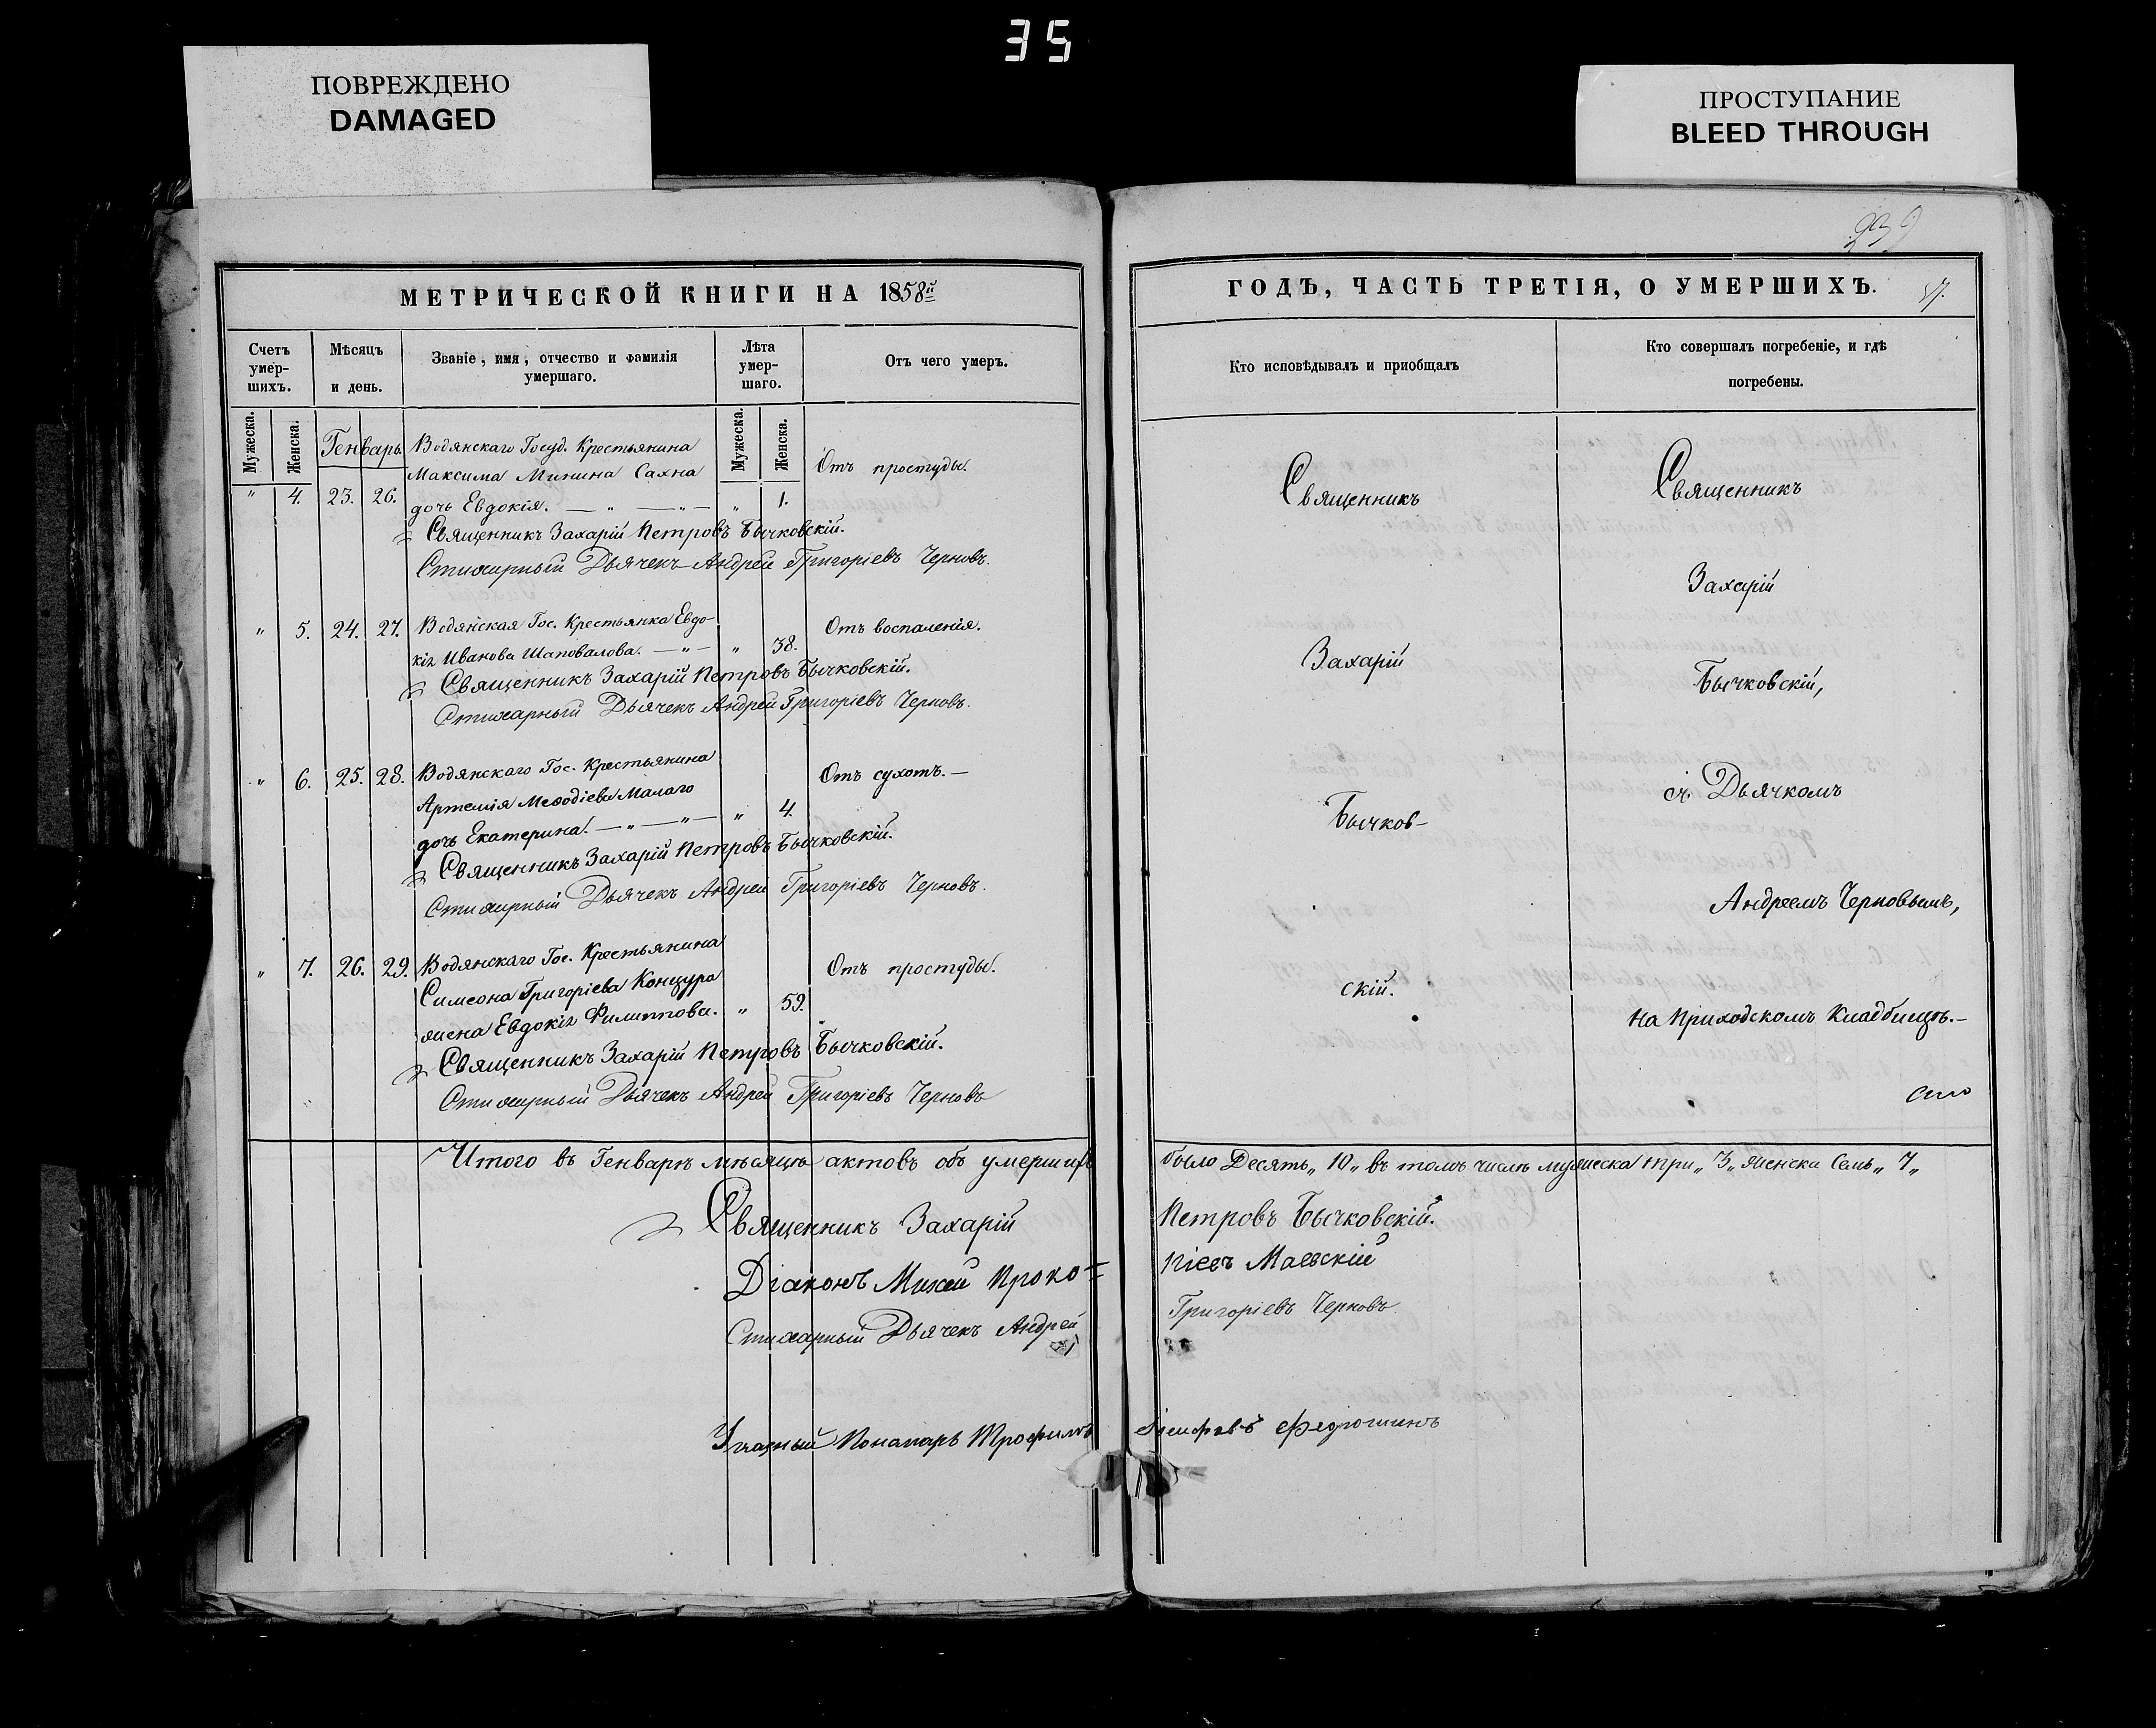 35
ПОВРЕЖДЕНО
DAMAGED
ПРОСТУПАНИЕ
BLEED THROUGH
МЕТРИЧЕСКОЙ КНИГИ НА 1858й
Счетъ умер-шихъ.
Мѣсяцъ и день.
Званіе, имя, отчество и фамилія умершаго.
Лѣта умер-шаго.
Отъ чего умеръ.
Мужеска.
Женска.
Мужеска.
Женска.
Генварь.
Водянскаго Госуд. Крестьянина
Максима Минина Сахна
Отъ простуды.
" 4. 23. 26. дочь Евдокія. — " — " — " 1.
Священникъ Захарій Петровъ Бычковскій.
Стихарный Дьячекъ Андрей Григоріевъ Черновъ.
" 5. 24. 27. Водянская Гос. Крестьянка Евдо-
Отъ воспаленія.
кія Иванова Шаповалова. — " — " 38.
Священникъ Захарій Петровъ Бычковскій.
Стихарный Дьячекъ Андрей Григоріевъ Черновъ.
" 6. 25. 28. Водянскаго Гос. Крестьянина
Отъ сухотъ. —
Артемія Меѳодіева Малаго
дочь Екатерина. — " — " — " 4.
Священникъ Захарій Петровъ Бычковскій.
Стихарный Дьячекъ Андрей Григоріевъ Черновъ.
" 7. 26. 29. Водянскаго Гос. Крестьянина
Отъ простуды.
Симеона Григоріева Концура
жена Евдокія Филиппова. " 59.
Священникъ Захарій Петровъ Бычковскій.
Стихарный Дьячекъ Андрей Григоріевъ Черновъ
Итого въ Генварѣ мѣсяцѣ актовъ объ умершихъ
Священникъ Захарій
Діаконъ Михей Проко-
Стихарный Дьячекъ Андрей
Пономарь Трофимъ
239
ГОДЪ, ЧАСТЬ ТРЕТІЯ, О УМЕРШИХЪ.
Кто исповѣдывалъ и пріобщалъ
Кто совершалъ погребеніе, и гдѣ погребены.
Священникъ
Захарій
Бычков-
скій.
Священникъ
Захарій
Бычковскій,
съ Дьячкомъ
Андреемъ Черновымъ,
на Приходскомъ Кладбищѣ. —
было Десять „ 10 „ въ томъ числѣ мужеска три „ 3 „ женска Семь „ 7 „
Петровъ Бычковскій.
піевъ Маевскій
Григоріевъ Черновъ